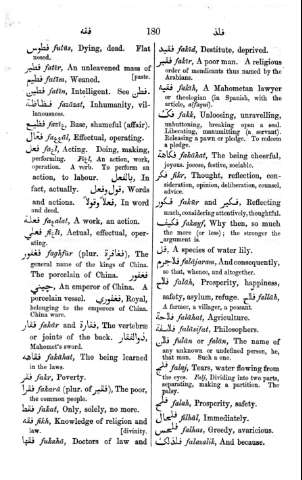 فقه 180 فلذ
فطوس futūs, Dying, dead. Flat
nosed.
فطير fatīr, An unleavened mass of
فطيم fatīm, Weaned. [paste.
فطين fatīn, Intelligent. See فطن.
فظاظة fazāzat, Inhumanity, vil-
lainousness.
Base, shameful (affair).
فعال Effectual, operating.
فعل Acting. Doing, making,
performing. An action, work,
operation. A verb. To perform an
action, to labour. بالفعل In
fact, actually. قول وفعل Words
and actions. قولا وفعلا In word
and deed.
فعلة A work, an action.
فعلي Actual, effectual, oper-
ating.
فغفور faghfūr (plur. فغافرة), The
general name of the kings of China.
The porcelain of China. فغفور
چيني An emperor of China. A
porcelain vessel. فغفوري Royal,
belonging to the emperors of China.
China ware.
فقار fakār and فقارة The vertebræ
or joints of the back. ذوالفقار
Mahomet's sword.
فقاهه fakāhat, The being learned
in the laws.
فقر fakr, Poverty.
فقرا fukarā (plur. of فقير), The poor,
the common people.
فقط fakat, Only, solely, no more.
فقه fikh, Knowledge of religion and
law. [divinity.
فقها fukahā, Doctors of law and
فقيد fakīd, Destitute, deprived.
فقير fakīr, A poor man. A religious
order of mendicants thus named by the
Arabians.
فقيه fakīh, A Mahometan lawyer
or theologian (in Spanish, with the
article, alfaqui).
فك fakk, Unloosing, unravelling,
unbuttoning, breaking open a seal.
Liberating, manumitting (a servant).
Releasing a pawn or pledge. To redeem
a pledge.
فكاهة fakāhat, The being cheerful,
joyous, jocose, festive, sociable.
فكر fikr, Thought, reflection, con-
sideration, opinion, deliberation, counsel,
advice.
فكور fakūr and فكير Reflecting
much, considering attentively, thoughtful.
فكيف fakayf, Why then, so much
the more (or less); the stronger the
argument is.
فل A species of water lily.
فلاجرم falājaram, And consequently,
so that, whence, and altogether.
فلاح falāh, Prosperity, happiness,
safety, asylum, refuge. فلاح fallāh,
A farmer, a villager, a peasant.
فلاحة falāhat, Agriculture.
فلاسفة falāsifat, Philosophers.
فلان fulān or falān, The name of
any unknown or undefined person, he,
that man. Such a one.
فلج falaj, Tears, water flowing from
the eyes. Falj, Dividing into two parts,
separating, making a partition. The
palsy.
فلح falah, Prosperity, safety.
Immediately.
فلحس falhas, Greedy, avaricious.
فلذلك falizalik, And because.